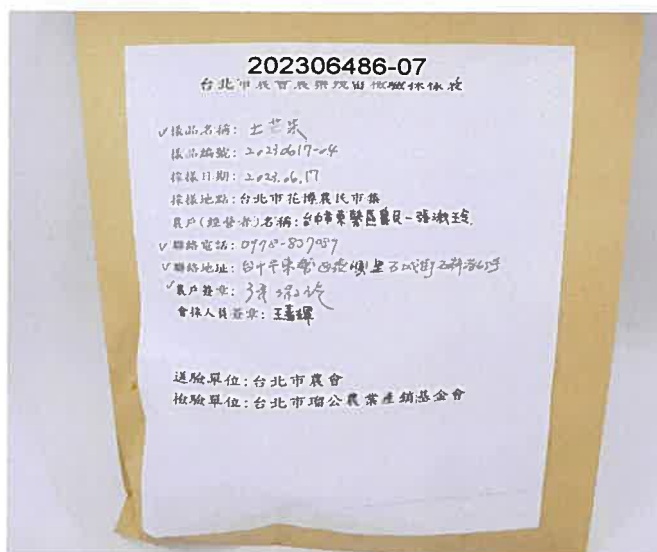 202306486-07
台北市農會農藥殘留檢驗採樣袋
✓樣品名稱: 土芒果
樣品編號: 20230617-04
採樣日期: 2023.06.17
採樣地點: 台北市花博農民市集
農戶(經營者)名稱: 台中市東勢區農民-張淑玲
✓聯絡電話: 0978-837087
✓聯絡地址: 台中市東勢區
✓農戶簽章:
會採人員簽章: 王嘉琿
送驗單位: 台北市農會
檢驗單位: 台北市瑠公農業產銷基金會